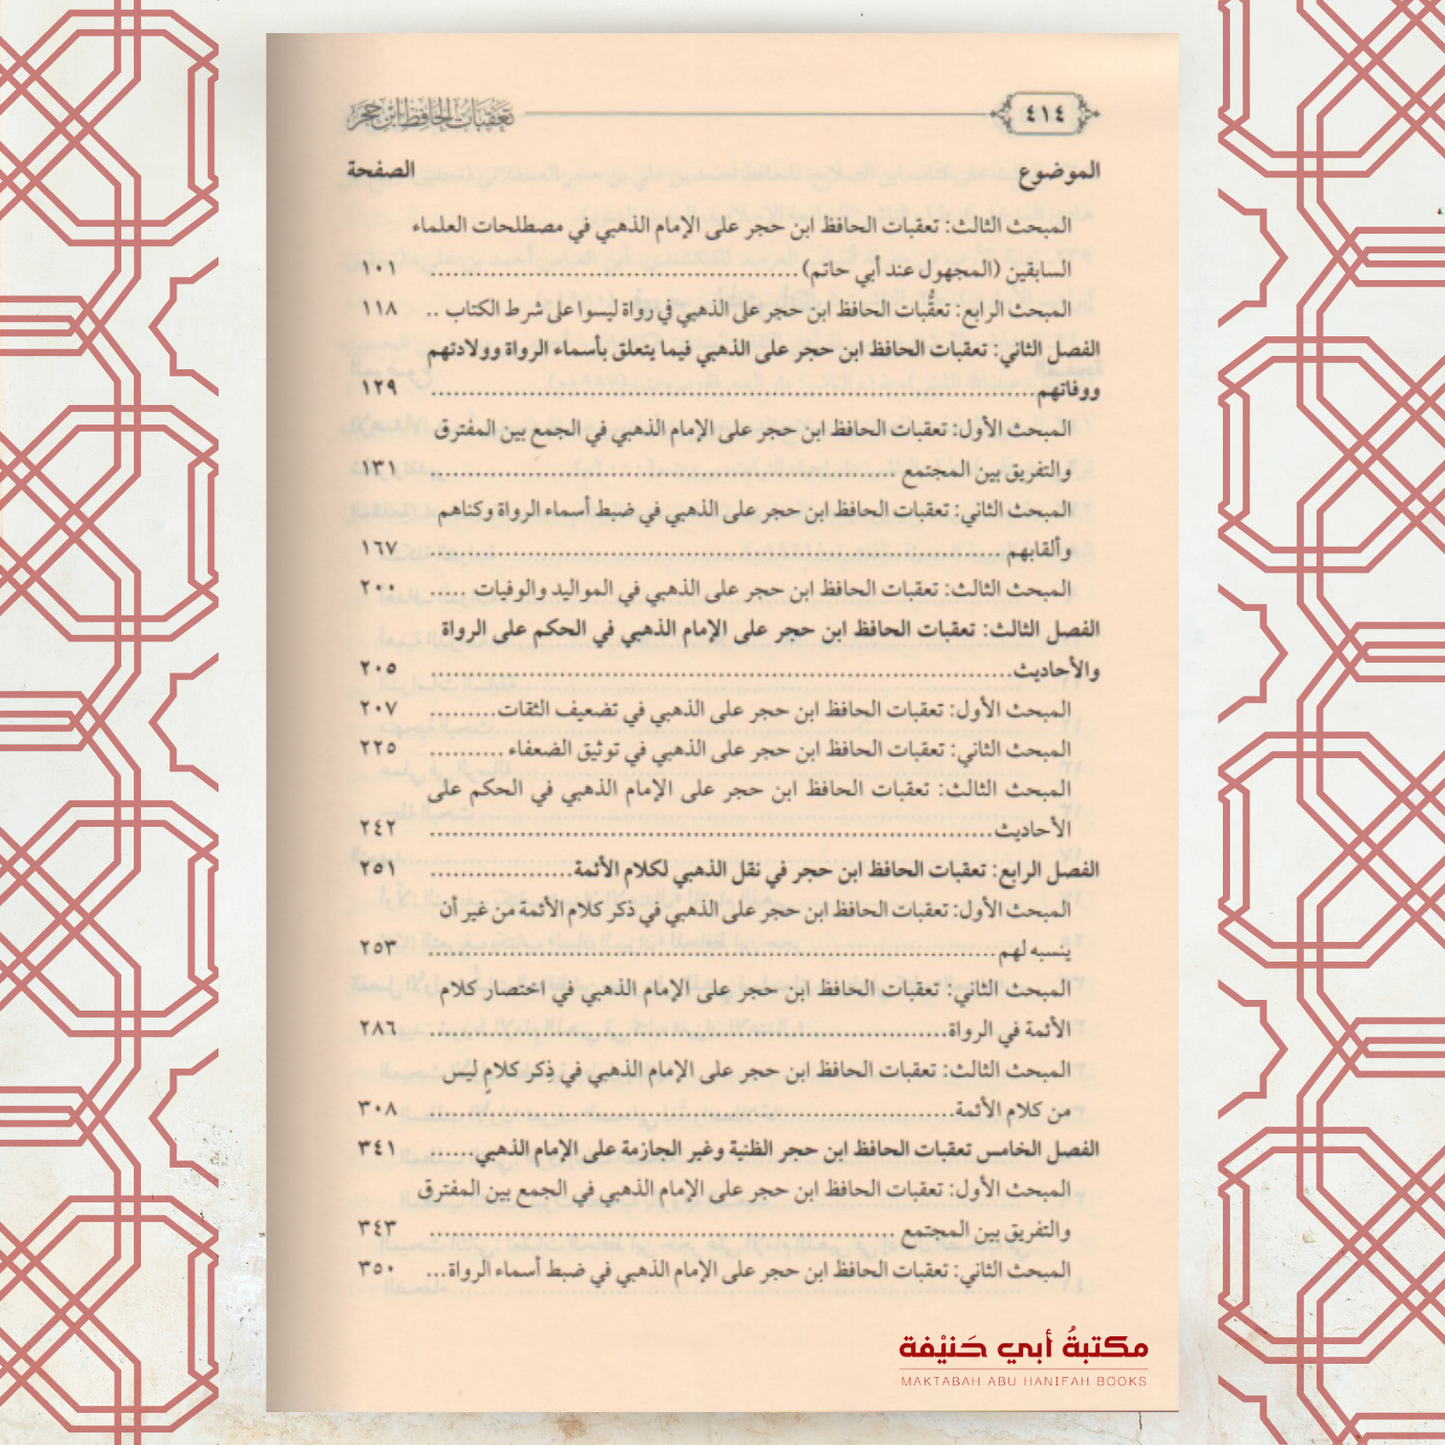 ٤١٤ تعقبات الحافظ ابن حجر
الموضوع الصفحة
المبحث الثالث: تعقبات الحافظ ابن حجر على الإمام الذهبي في مصطلحات العلماء
السابقين (المجهول عند أبي حاتم) ................ ١٠١
المبحث الرابع: تعقُّبات الحافظ ابن حجر على الذهبي في رواة ليسوا على شرط الكتاب .. ١١٨
الفصل الثاني: تعقبات الحافظ ابن حجر على الذهبي فيما يتعلق بأسماء الرواة وولادتهم
ووفاتهم................ ١٢٩
المبحث الأول: تعقبات الحافظ ابن حجر على الإمام الذهبي في الجمع بين المفترق
والتفريق بين المجتمع ................ ١٣١
المبحث الثاني: تعقبات الحافظ ابن حجر على الذهبي في ضبط أسماء الرواة وكناهم
وألقابهم ................ ١٦٧
المبحث الثالث: تعقبات الحافظ ابن حجر على الذهبي في المواليد والوفيات ..... ٢٠٠
الفصل الثالث: تعقبات الحافظ ابن حجر على الإمام الذهبي في الحكم على الرواة
والأحاديث................ ٢٠٥
المبحث الأول: تعقبات الحافظ ابن حجر على الذهبي في تضعيف الثقات......... ٢٠٧
المبحث الثاني: تعقبات الحافظ ابن حجر على الذهبي في توثيق الضعفاء .......... ٢٢٥
المبحث الثالث: تعقبات الحافظ ابن حجر على الإمام الذهبي في الحكم على
الأحاديث................ ٢٤٢
الفصل الرابع: تعقبات الحافظ ابن حجر في نقل الذهبي لكلام الأئمة................... ٢٥١
المبحث الأول: تعقبات الحافظ ابن حجر على الذهبي في ذكر كلام الأئمة من غير أن
ينسبه لهم ................ ٢٥٣
المبحث الثاني: تعقبات الحافظ ابن حجر على الإمام الذهبي في اختصار كلام
الأئمة في الرواة................ ٢٨٦
المبحث الثالث: تعقبات الحافظ ابن حجر على الإمام الذهبي في ذِكر كلامٍ ليس
من كلام الأئمة................ ٣٠٨
الفصل الخامس تعقبات الحافظ ابن حجر الظنية وغير الجازمة على الإمام الذهبي...... ٣٤١
المبحث الأول: تعقبات الحافظ ابن حجر على الإمام الذهبي في الجمع بين المفترق
والتفريق بين المجتمع ................ ٣٤٣
المبحث الثاني: تعقبات الحافظ ابن حجر على الإمام الذهبي في ضبط أسماء الرواة... ٣٥٠
مكتبةُ أبي حَنيْفة
MAKTABAH ABU HANIFAH BOOKS